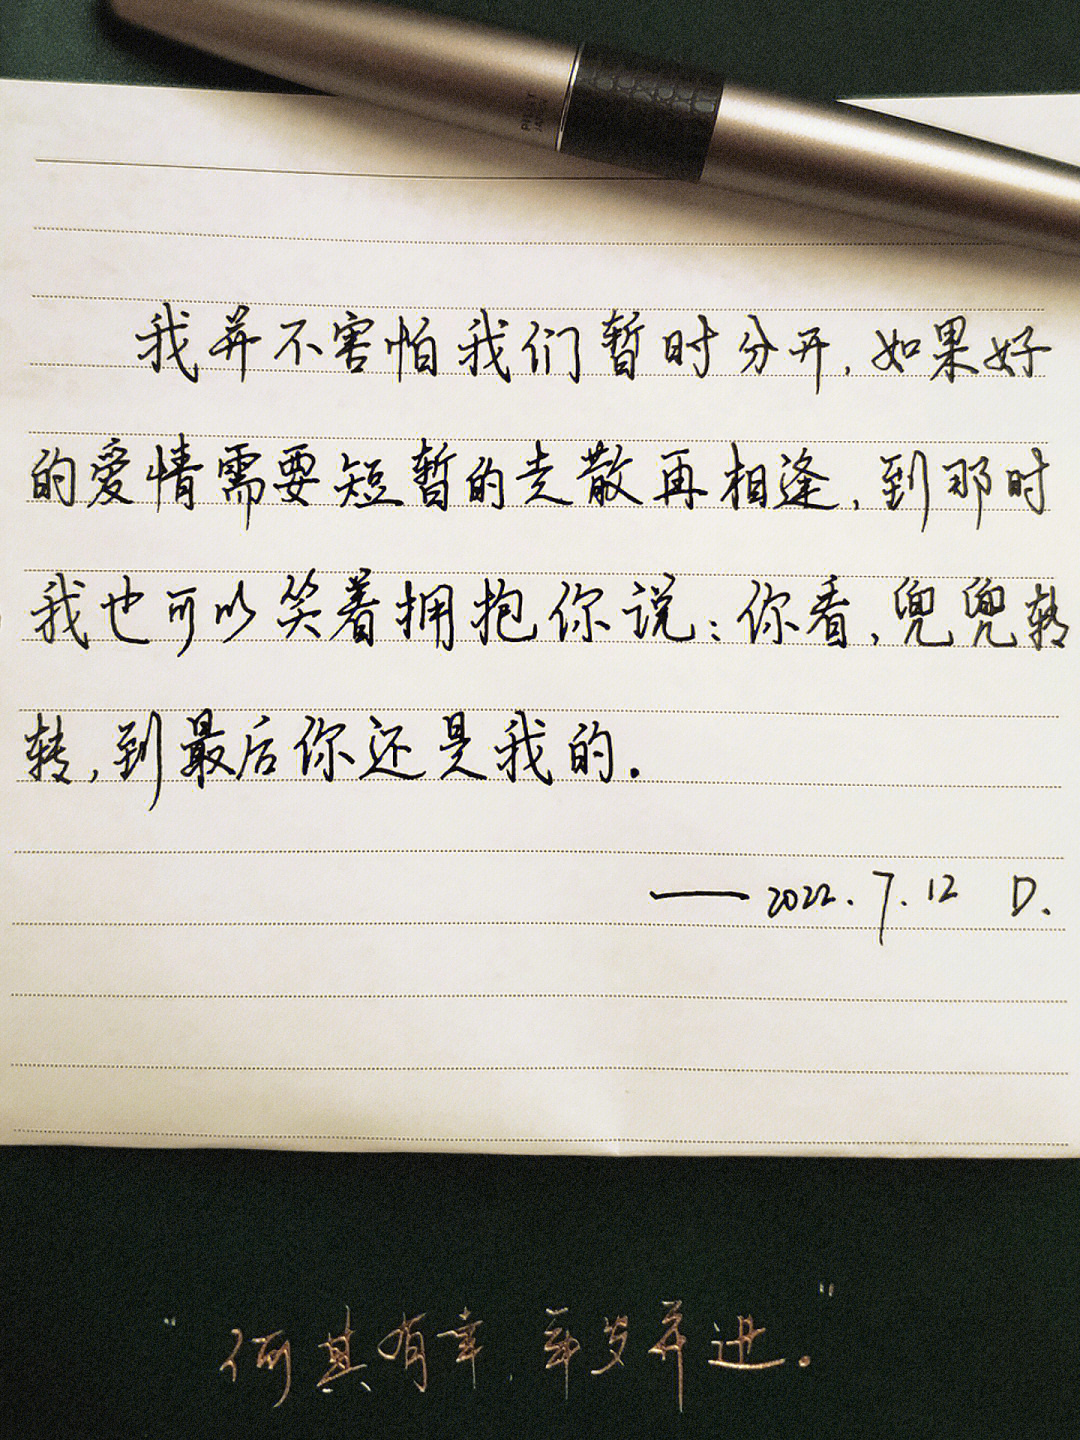 PILOT
JAPAN
我并不害怕我们暂时分开,如果好
的爱情需要短暂的走散再相逢,到那时
我也可以笑着拥抱你说:你看,兜兜转
转,到最后你还是我的.
——2022.7.12 D.
"何其有幸,年岁并进."